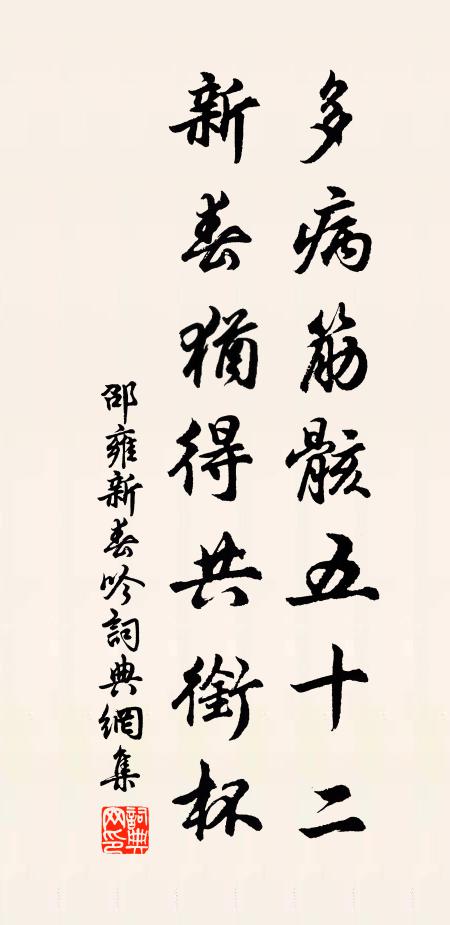 多病筋骸五十二
新春猶得共銜杯
邵雍新春吟詞典網集
詞典网印